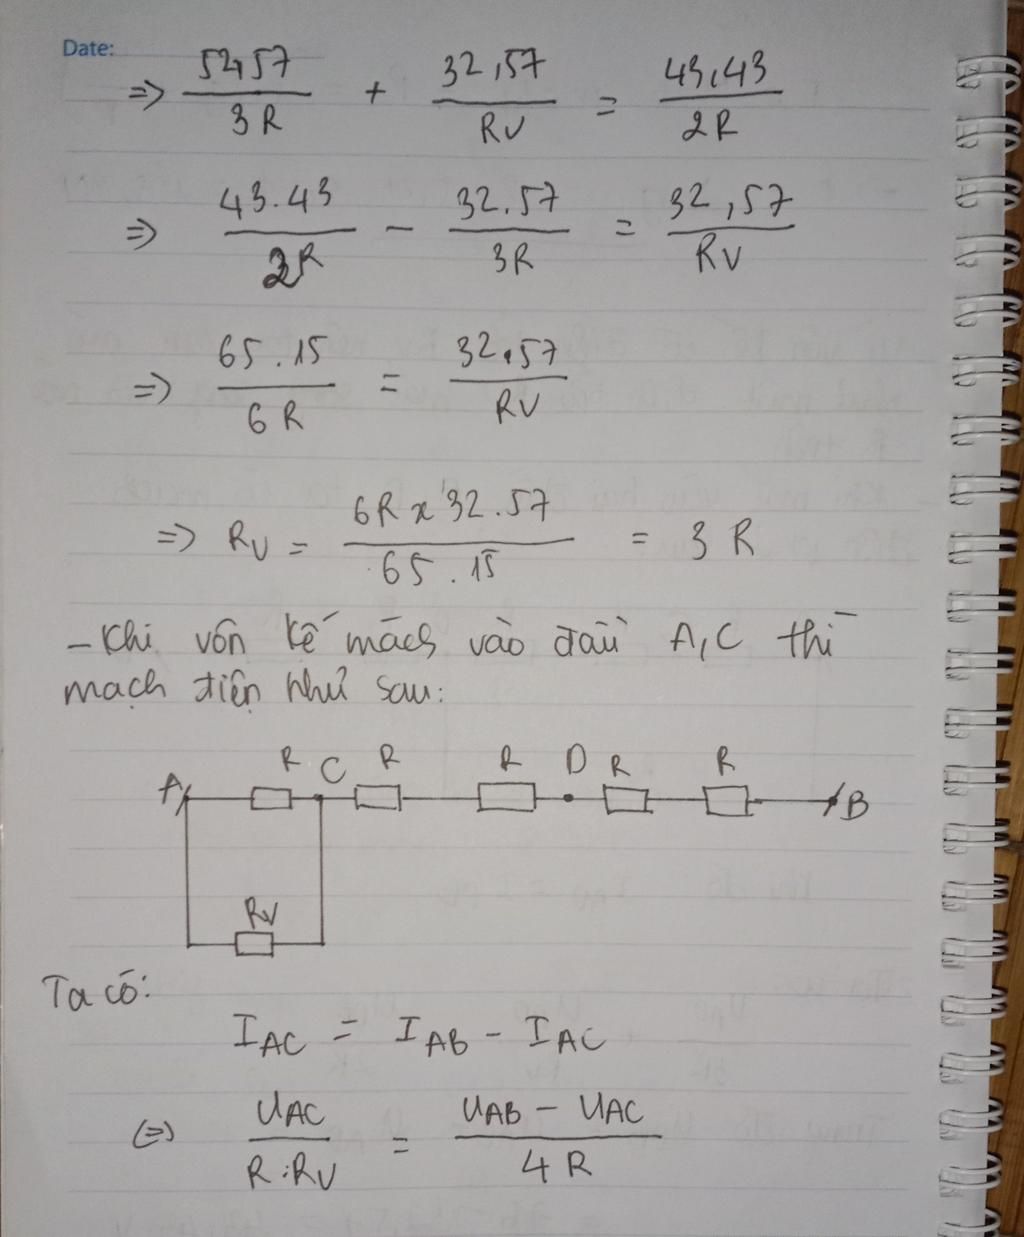 Date:
=> 52,57/3R + 32,57/RV = 43,43/2R
=> 43.43/2R - 32.57/3R = 32,57/RV
=> 65.15/6R = 32.57/RV
=> RV = 6R x 32.57/65.15 = 3R
- Khi vôn kế mắch vào đầu A,C thì
mạch điện như sau:
A R C R R D R R B
RV
Ta có:
IAC = IAB - IAC
(=) UAC/R:RV = UAB - UAC/4R